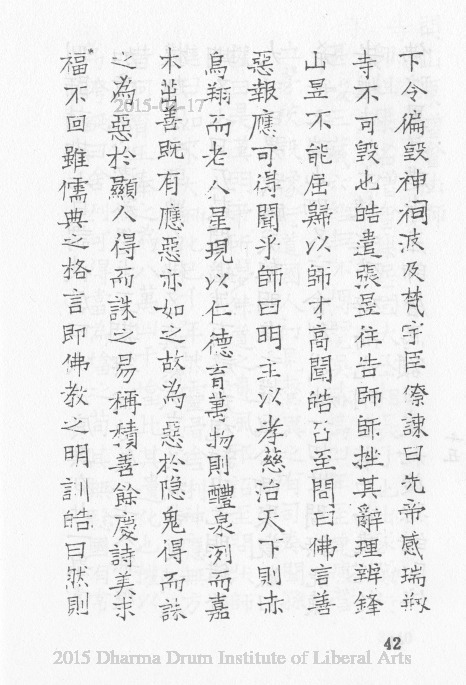 下令徧毀神祠波及梵宇臣僚諫曰先帝感瑞剏
寺不可毀也皓遣張昱往告師師挫其辭理辨鋒
山昱不能屈歸以師才高聞皓召至問曰佛言善
惡報應可得聞乎師曰明主以孝慈治天下則赤
烏翔而老人星現以仁德育萬物則醴泉冽而嘉
木茁善既有應惡亦如之故為惡於隐鬼得而誅
之為惡於顯人得而誅之易稱積善餘慶詩美求
福不回雖儒典之格言即佛教之明訓皓曰然則
42
2015 Dharma Drum Institute of Liberal Arts